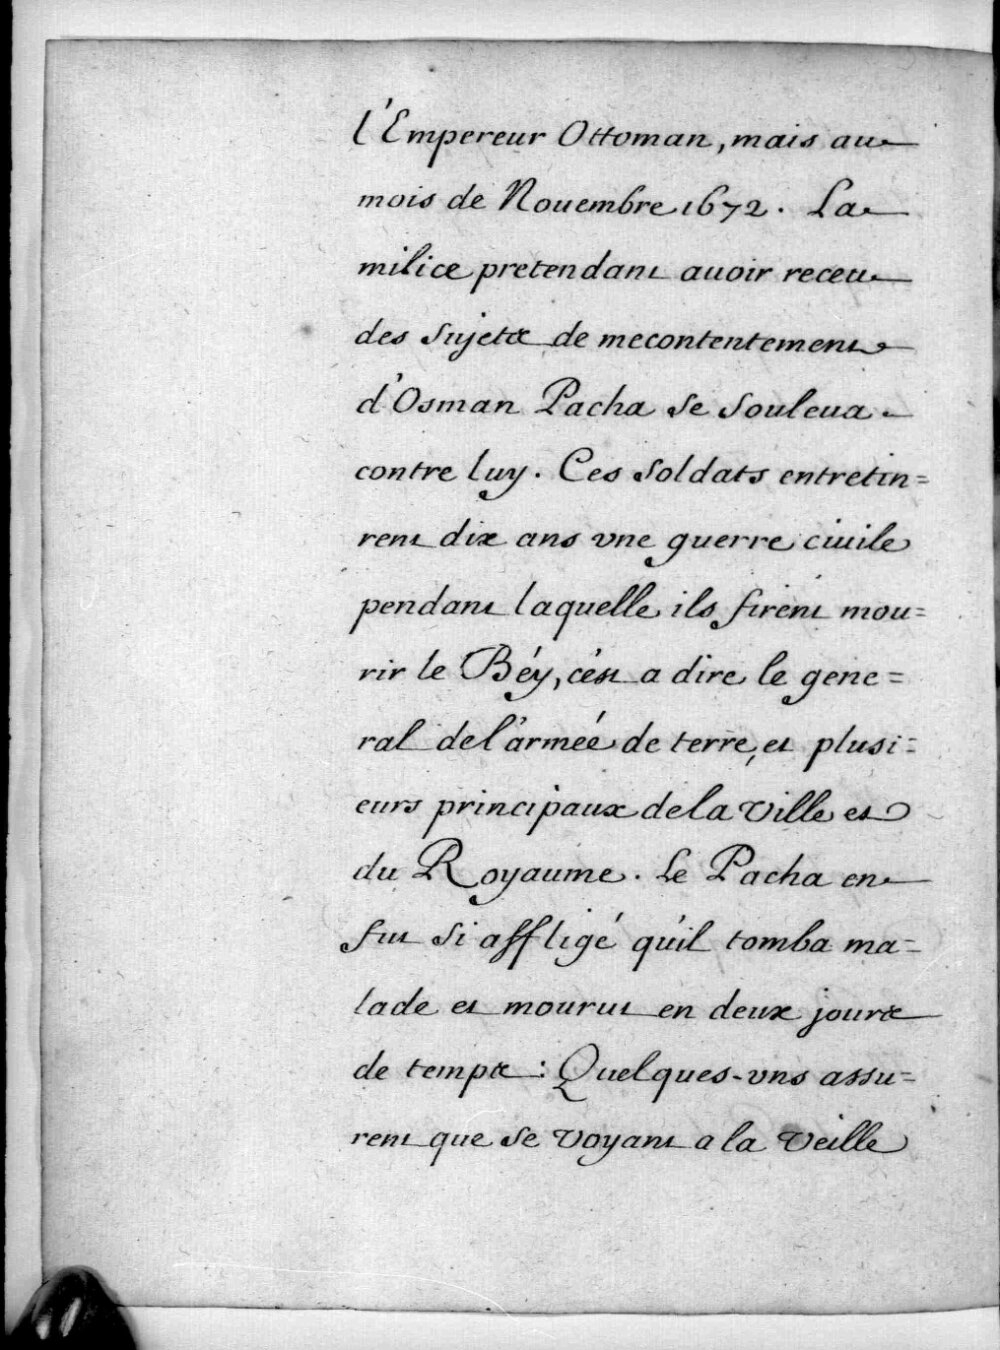 l'Empereur Ottoman, mais au
mois de Nouembre 1672. La
milice pretendant auoir receu
des sujets de mecontentement
d'Osman Pacha se souleua
contre luy. Ces soldats entretin=
rent dix ans vne guerre ciuile
pendant laquelle ils firent mou=
rir le Béy, c'est a dire le gene=
ral de l'armée de terre, et plusi=
eurs principaux de la ville et
du Royaume. Le Pacha en
fut si affligé qu'il tomba ma=
lade et mourut en deux jours
de temps : Quelques-vns assu=
rent que se voyant a la veille